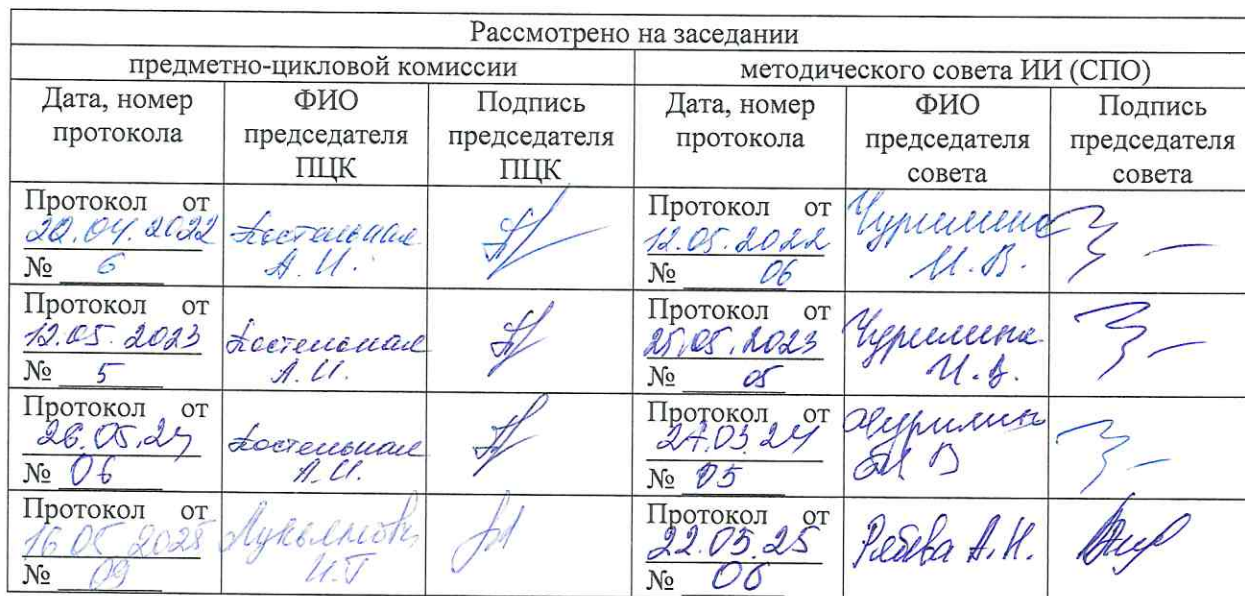 Рассмотрено на заседании
предметно-цикловой комиссии
методического совета ИИ (СПО)
Дата, номер протокола
ФИО председателя ПЦК
Подпись председателя ПЦК
Дата, номер протокола
ФИО председателя совета
Подпись председателя совета
Протокол от
22.04.2022
№ 6
А.И.
Протокол от
12.05.2022
№ 06
Чурилина
И.В.
Протокол от
12.05.2023
№ 5
А.И.
Протокол от
25.05.2023
№ 05
Чурилина
И.В.
Протокол от
26.05.24
№ 06
А.И.
Протокол от
№ 05
Чурилина
И В
Протокол от
16 05 2025
№ 09
И.Г
Протокол от
22.05.25
№ 06
А.Н.